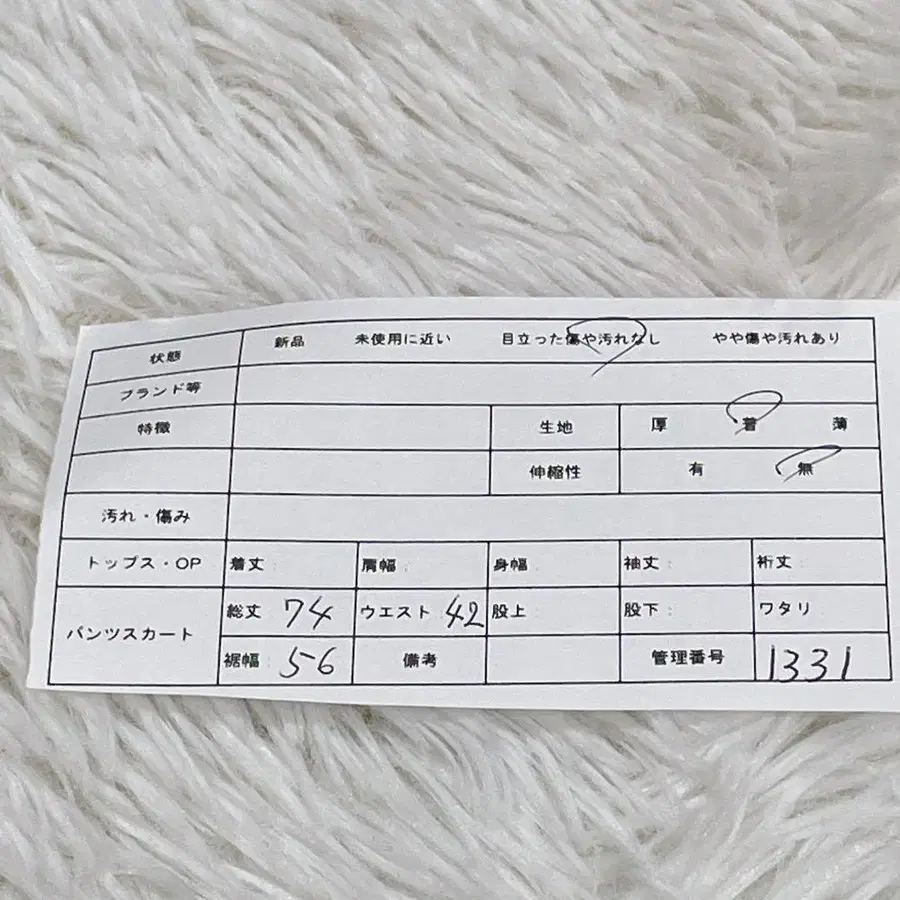 状態 新品 未使用に近い 目立った傷や汚れなし やや傷や汚れあり
ブランド等
特徴 生地 厚 着 薄
伸縮性 有 無
汚れ・傷み
トップス・OP 着丈: 肩幅: 身幅: 袖丈: 裄丈:
パンツスカート 総丈 74 ウエスト 42 股上: 股下: ワタリ
裾幅: 56 備考 管理番号 1331